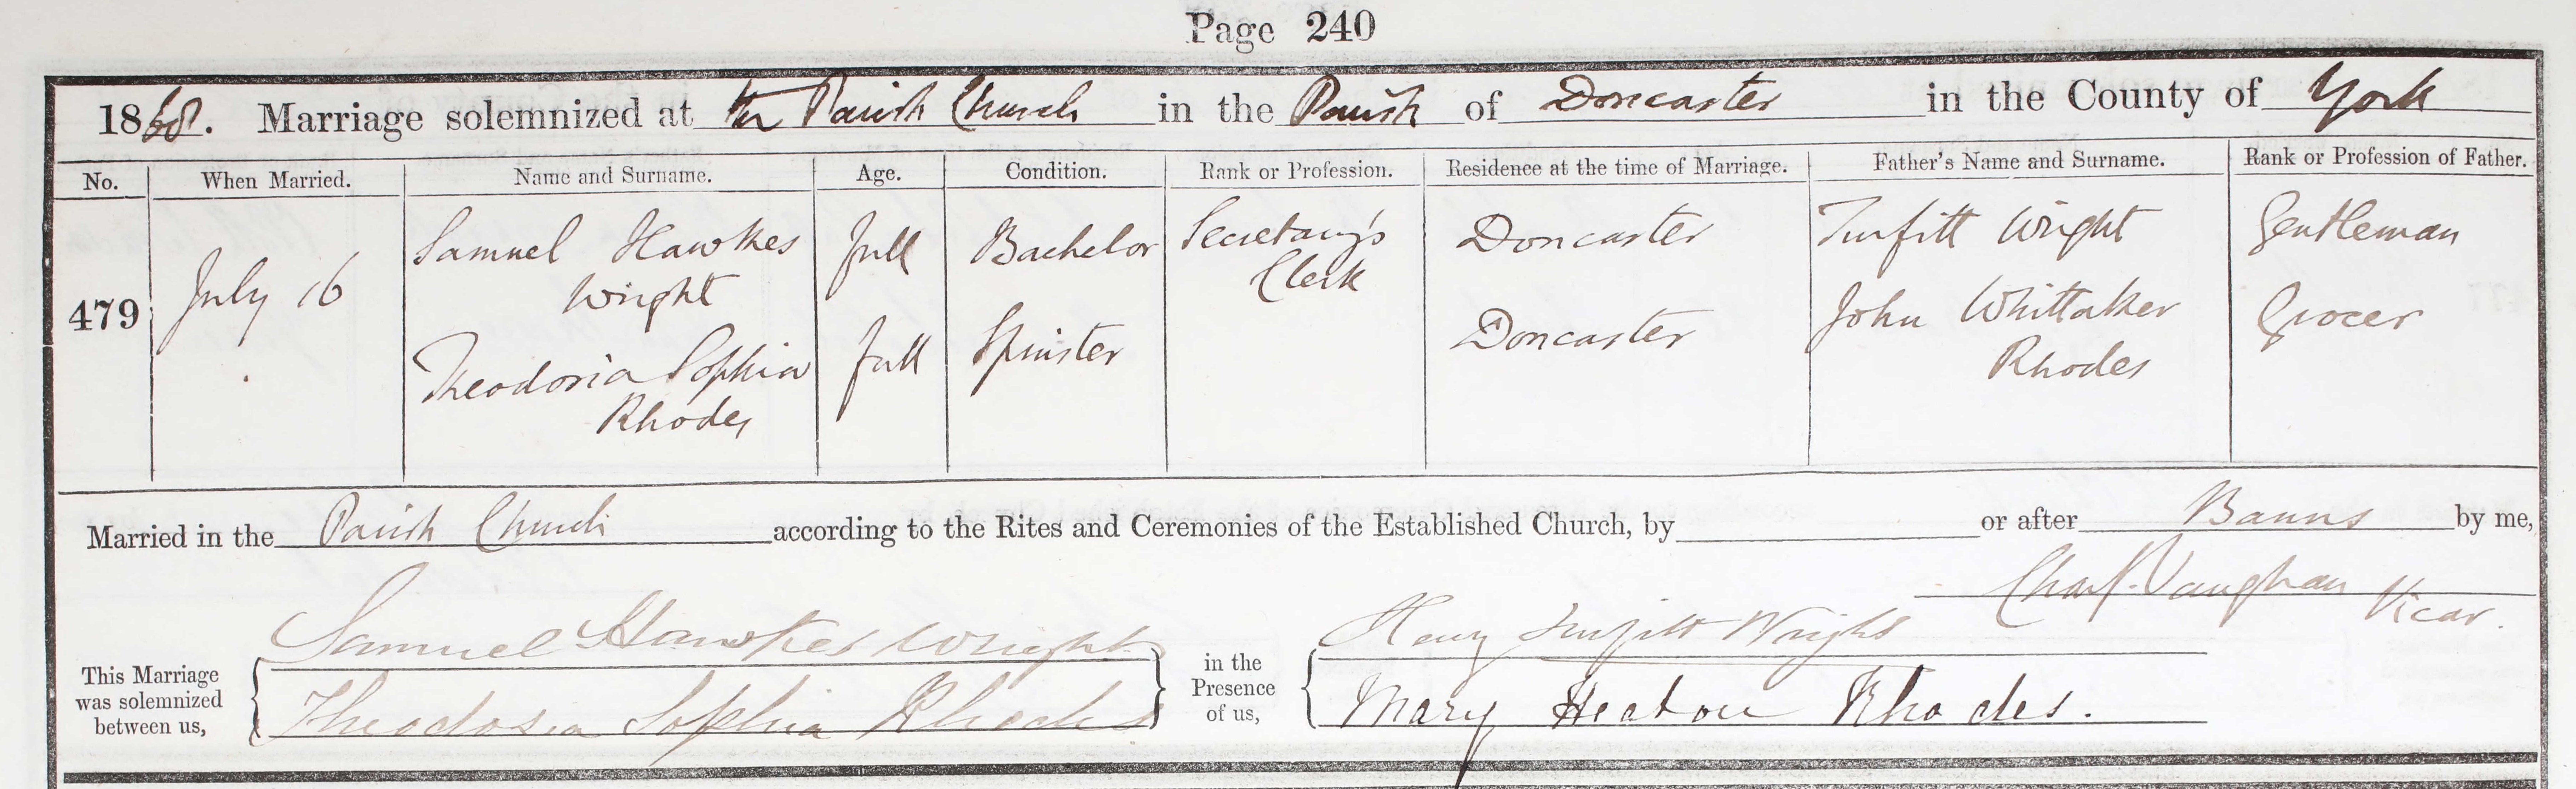 Page 240
1868. Marriage solemnized at the Parish Church in the Parish of Doncaster in the County of York
No. When Married. Name and Surname. Age. Condition. Rank or Profession. Residence at the time of Marriage. Father's Name and Surname. Rank or Profession of Father.
479 July 16 Samuel Hawkes Wright full Bachelor Secretary's Clerk Doncaster Turfitt Wright Gentleman
Theodosia Sophia Rhodes full Spinster Doncaster John Whittaker Rhodes Grocer
Married in the Parish Church according to the Rites and Ceremonies of the Established Church, by or after Banns by me,
Chas. J. Vaughan Vicar.
This Marriage was solemnized between us, Samuel Hawkes Wright in the Presence of us, Henry Turfitt Wright
Theodosia Sophia Rhodes Mary Heaton Rhodes.